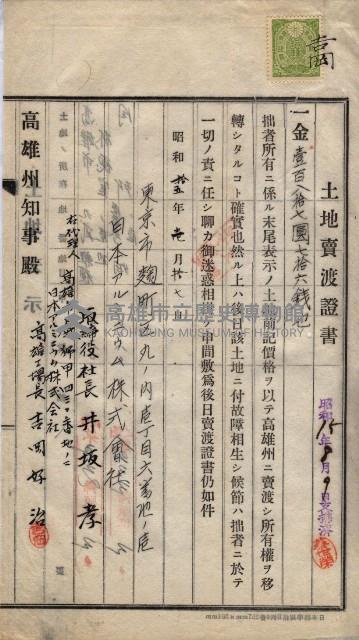 土地賣渡證書
一金壹百八拾七圓七拾六錢也
拙者所有ニ係ル末尾表示ノ土地前記價格ヲ以テ高雄州ニ賣渡シ所有權ヲ移
轉シタルコト確實也然ル上ハ後日該土地ニ付故障相生シ候節ハ拙者ニ於テ
一切ノ責ニ任シ聊カ御迷惑相掛ケ申間敷爲後日賣渡證書仍如件
昭和拾五年 月拾七日
東京市麴町區丸ノ内 丁目六番地ノ
日本アルミニウム株式會社
取締役社長 井坂孝
右代理人
高雄市 甲四三〇番地ノ二
日本アルミニウム株式會社
高雄工場長 吉岡好治
高雄州知事殿
昭和15年8月9日
高雄市立歷史博物館
KAOHSIUNG MUSEUM OF HISTORY